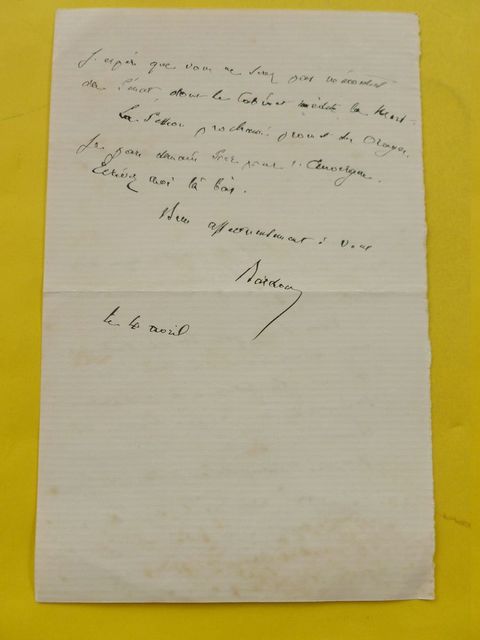 J'espère que vous ne serez pas mécontent
du Sénat, dont le Cabinet médite la mort.
La Session prochaine promet des orages.
Je pars demain soir pour l'Auvergne.
Ecrivez moi là bas.
Bien affectueusement à vous
Bardoux
le 10 avril